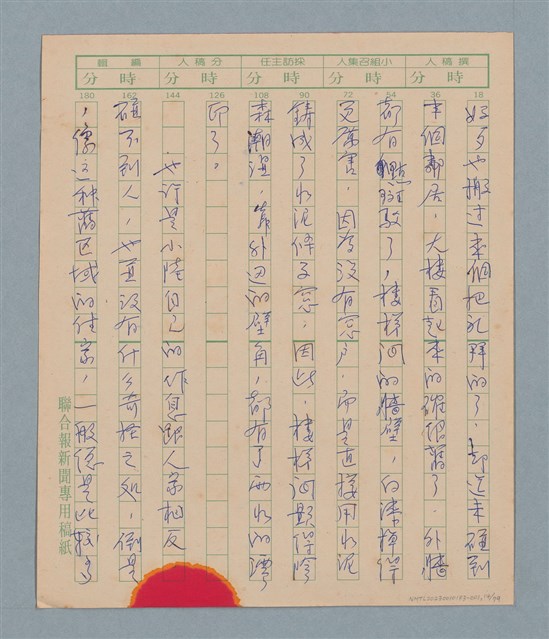 撰稿人 小組召集人 採訪主任 分稿人 編輯
時 分 時 分 時 分 時 分 時 分
18 36 54 72 90 108 126 144 162 180
好歹也搬过来個把礼拜的了，却近来碰到
本個鄰居，大樓看起来的確很舊了，外牆
都有點斑駁了，樓梯间的牆壁，白漆掉得
更厲害，因為没有窗户，而是直接用水泥
鑄成了水泥什子窗，因此，樓梯间顯得陰
森潮濕，靠外边的壁角，都有了雨水的漬
印了。
也许是小陸自己的作息跟人家相反
碰不到人，也並没有什么奇怪之处，倒是
，像这种舊区域的住家，一般總是比較多
聯合報新聞專用稿紙